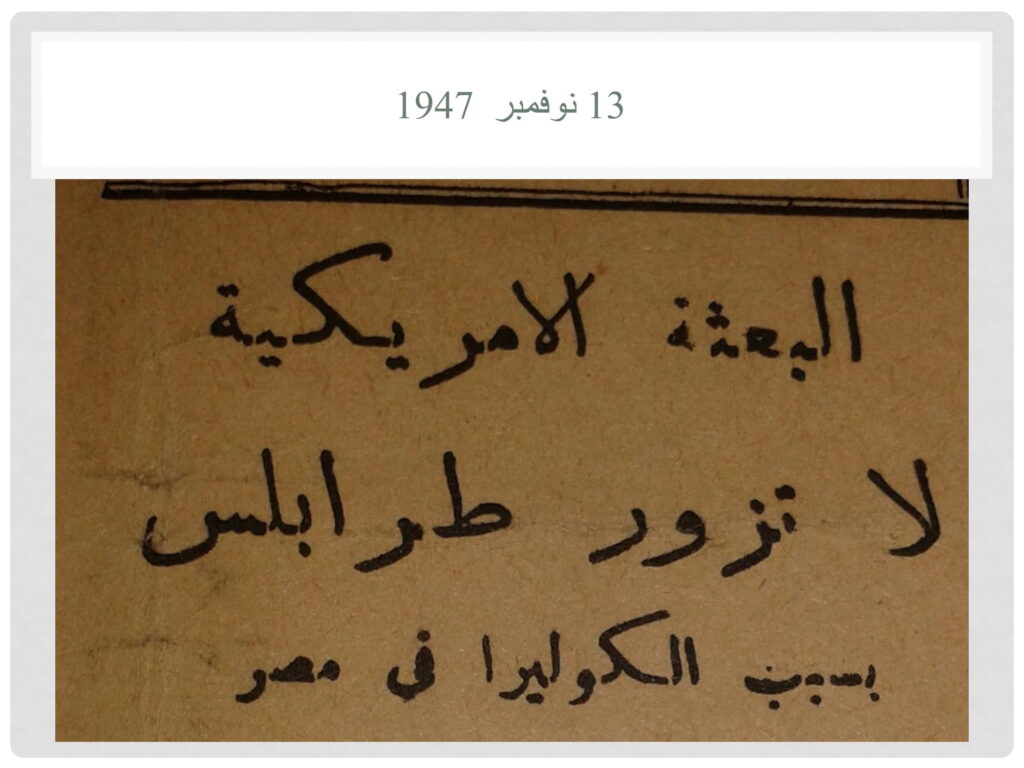 13 نوفمبر 1947
البعثة الامريكية
لا تزور طرابلس
بسبب الكوليرا فى مصر